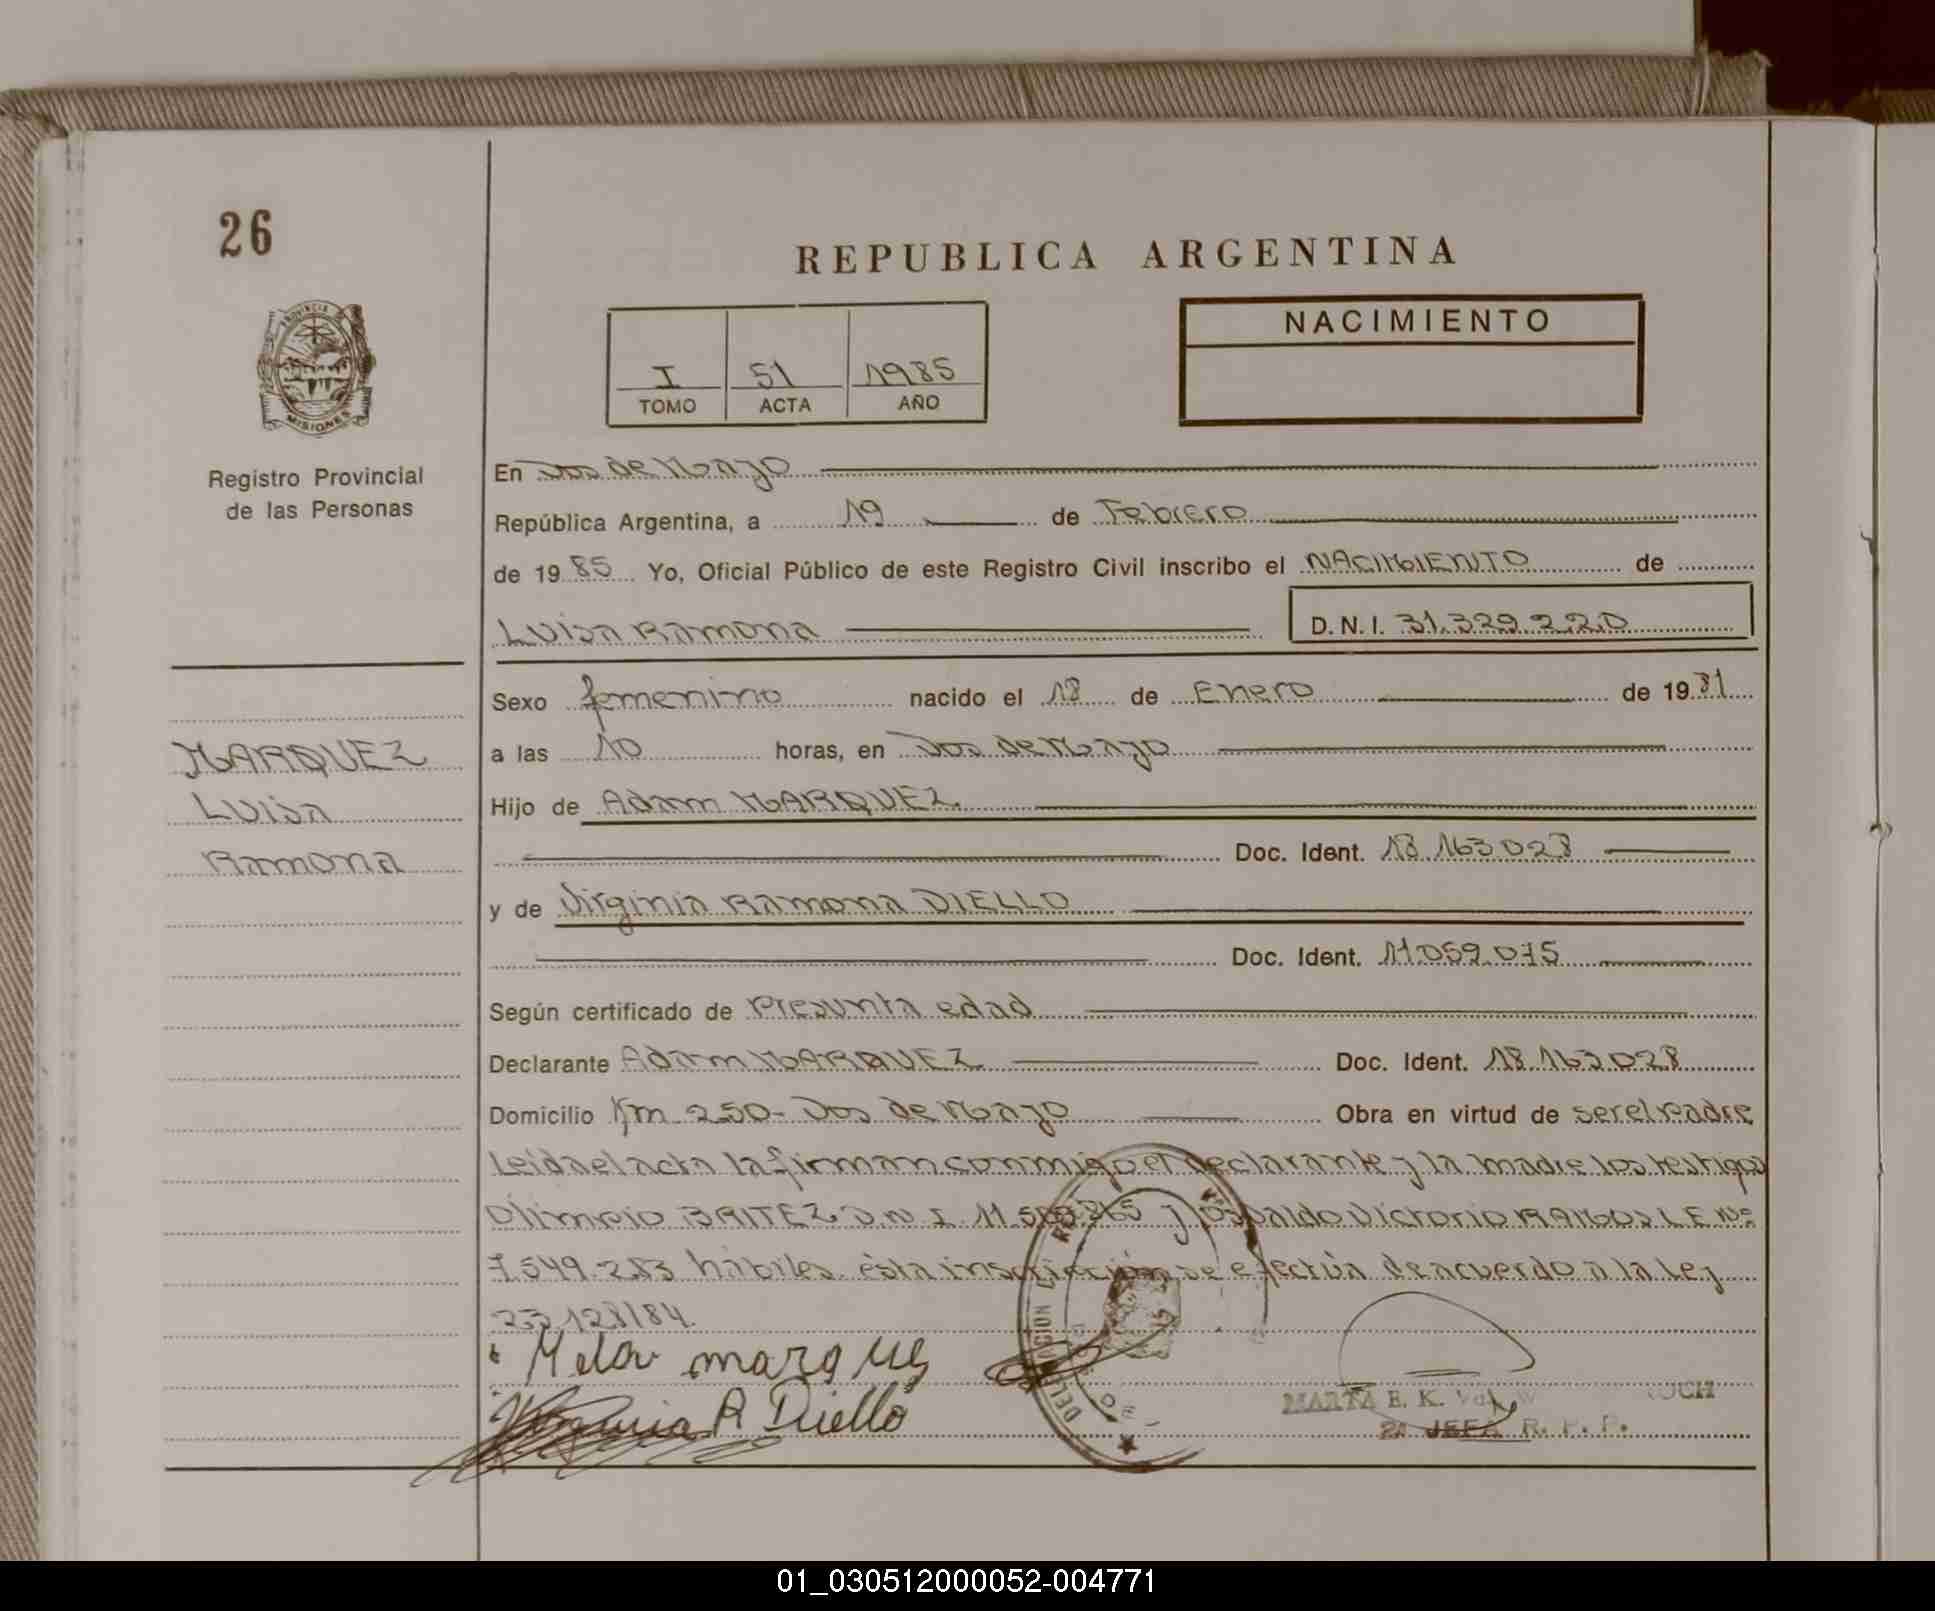 26
REPUBLICA ARGENTINA
PROVINCIA DE
MISIONES
Registro Provincial
de las Personas
I 51 1985
TOMO ACTA AÑO
NACIMIENTO
En Dos de Mayo
República Argentina, a 19 de Febrero
de 1985 Yo, Oficial Público de este Registro Civil inscribo el NACIMIENTO de
Luisa Ramona D.N.I. 31.329.220
Sexo femenino nacido el 18 de Enero de 1981
MARQUEZ
Luisa
Ramona
a las 10 horas, en Dos de Mayo
Hijo de Adam MARQUEZ
Doc. Ident. 18.163.028
y de Virginia Ramona DIELLO
Doc. Ident. 11.059.075
Según certificado de Presunta edad
Declarante Adam MARQUEZ Doc. Ident. 18.163.028
Domicilio Km 250 - Dos de Mayo Obra en virtud de ser el Padre
Leida el acta la firman conmigo el declarante y la madre los testigos
Olimpio BRITEZ D.N.I. 11. y Osvaldo Victorio RAMOS L.E Nº
7.549.283 hábiles. ésta inscripción se efectúa de acuerdo a la Ley
23.128/84.
marques
R Diello
MARTA E. K.
2ª JEFA R. P. P.
01_030512000052-004771